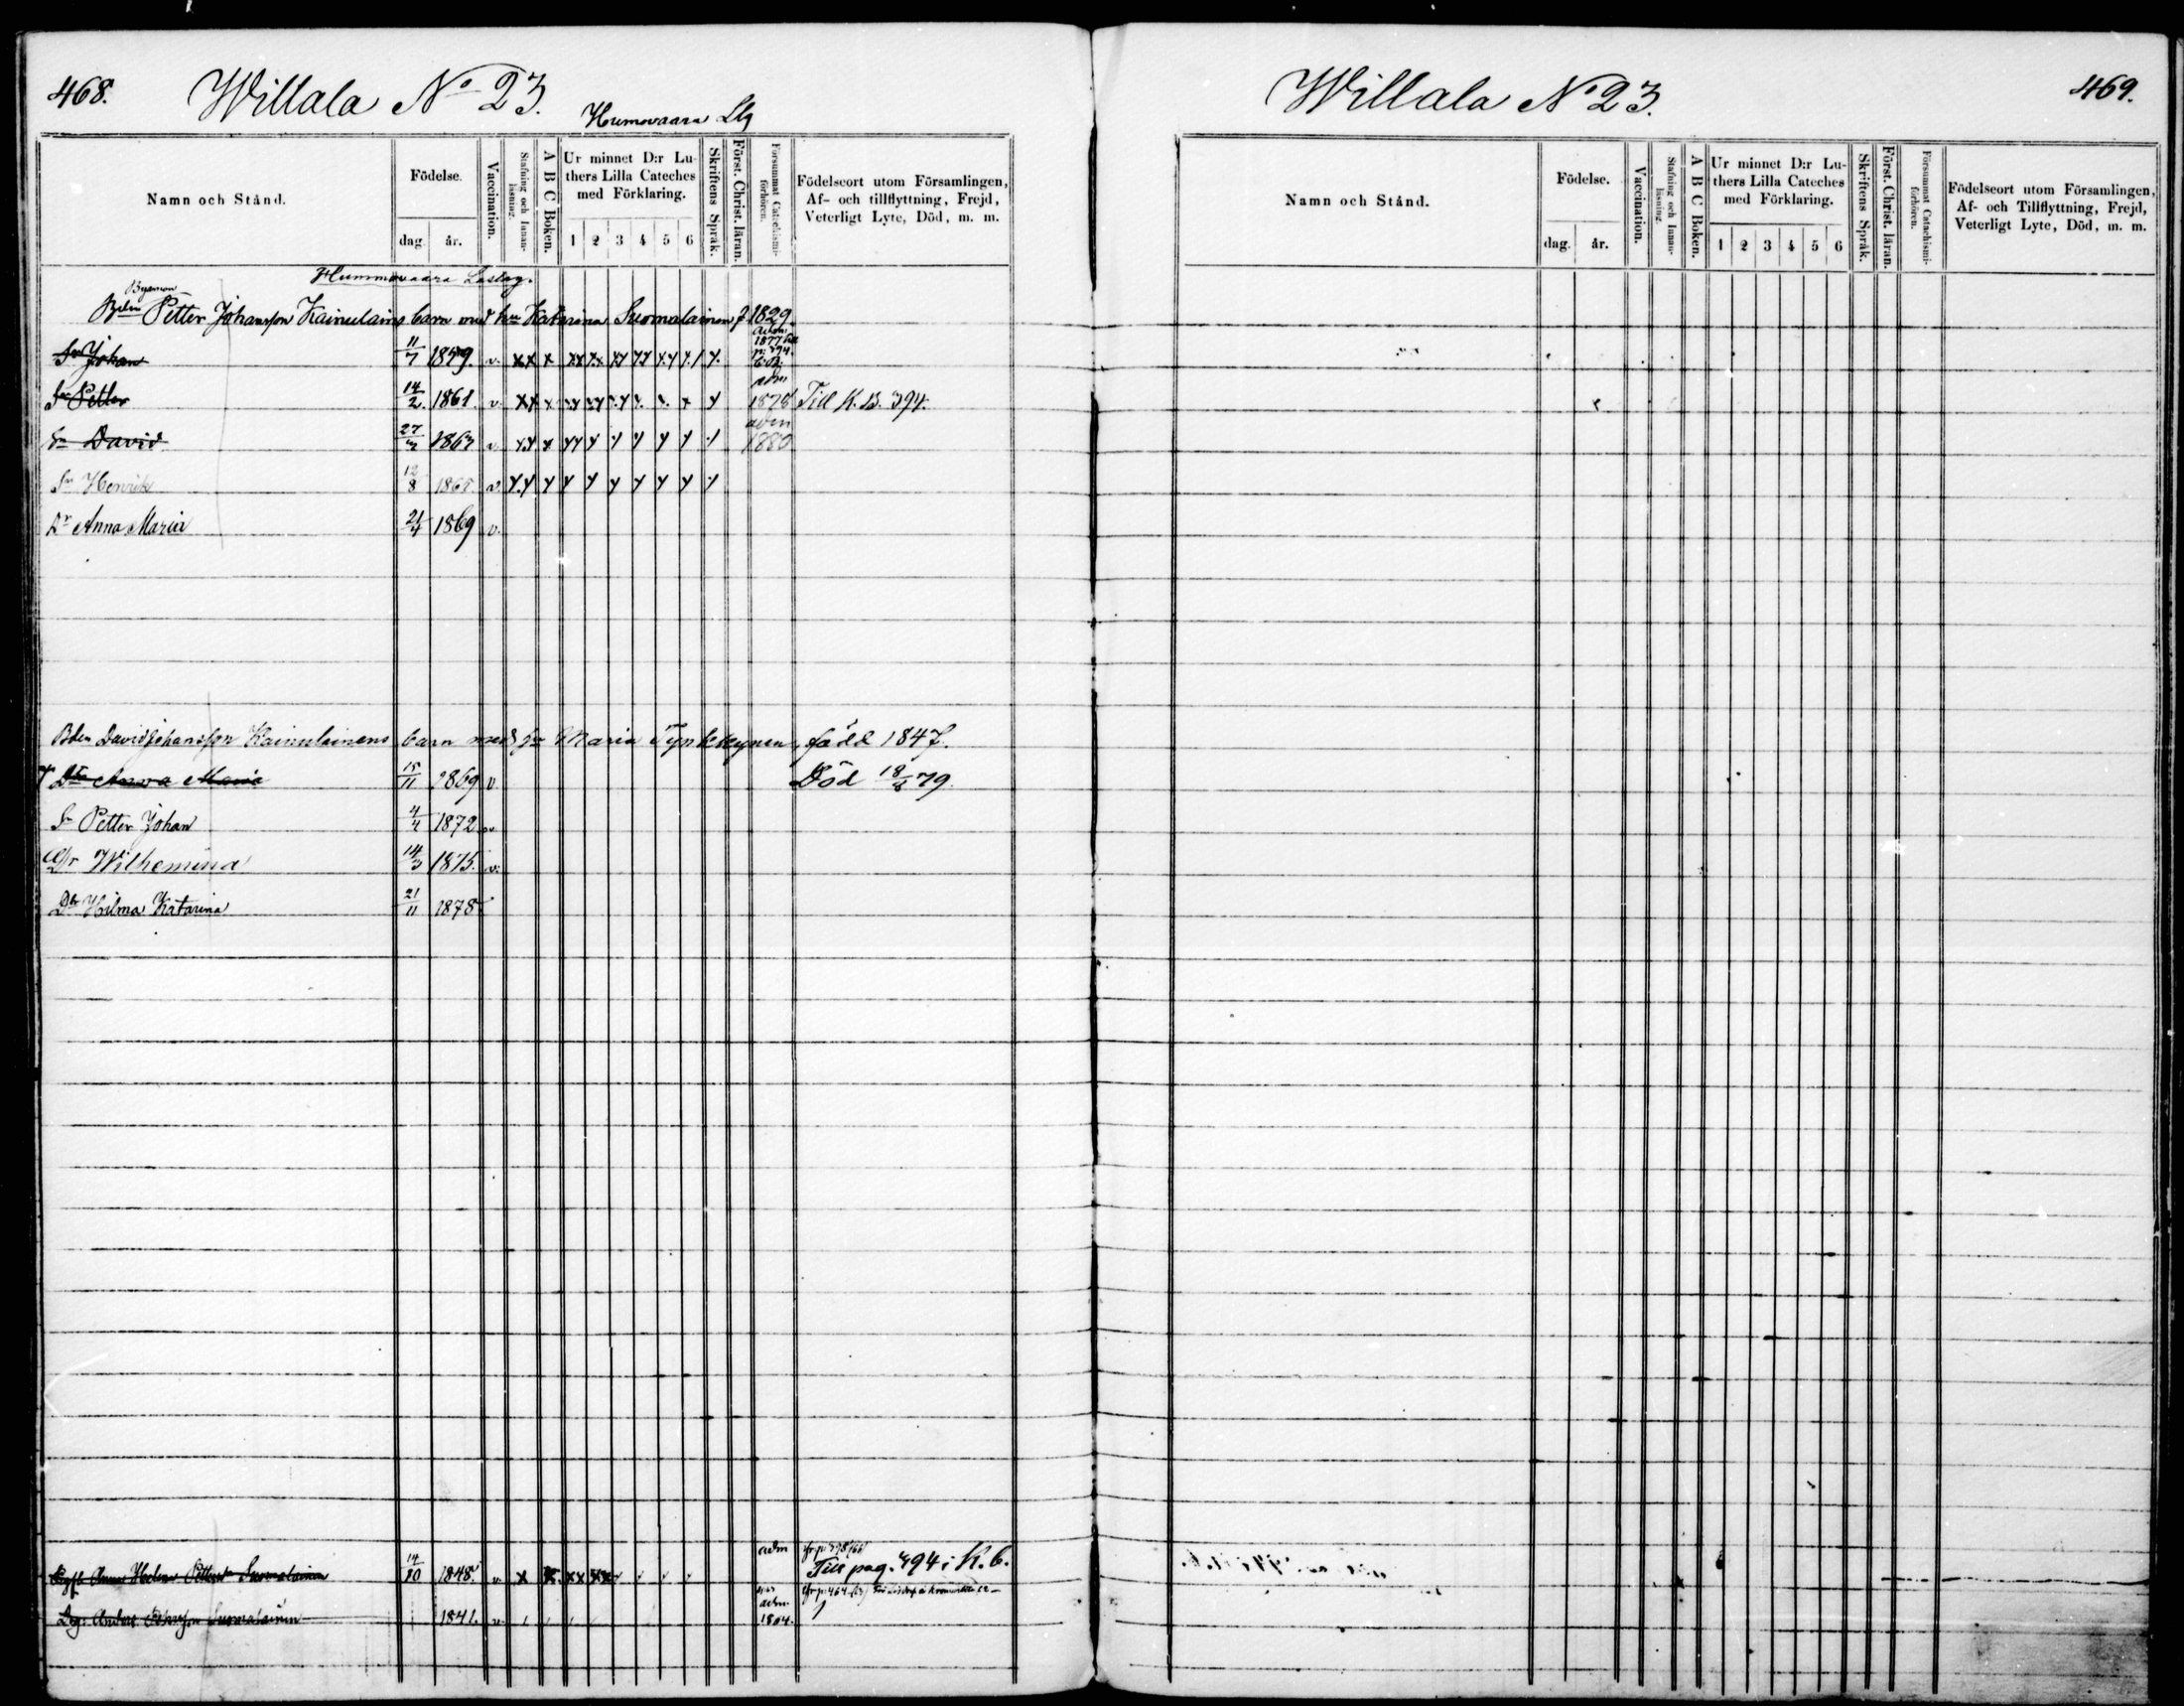 468.
Willala No 23.
Humovaara Llg
Namn och Stånd.
Födelse.
dag.
år.
Vaccination.
Stafning och Innan-
läsning.
A B C Boken.
Ur minnet D:r Lu-
thers Lilla Cateches
med Förklaring.
1 2 3 4 5 6
Skriftens Språk.
Först. Christ. läran.
Försummat Catechismi-
förhören.
Födelseort utom Församlingen,
Af- och tillflyttning, Frejd,
Veterligt Lyte, Död, m. m.
Hummovaara Lastag.
Byaman
Petter Johansson Kainulains barn med hu Katarina Suomalainen f 1829
Sn Johan 11/7 1859. v. x x x x x x x x y y y x y y. 1877
Sn Petter 14/2. 1861. v. x x x y y y x y 1878 Till K. B. 394.
Sn David 27/3 1863 v. y y x y y y y y y y y adm 1880
Sn Henrik 12/8 186 v. y. y y y y y y y y y
Dr Anna Maria 21/4 1869 v.
Bden David Johansson Kainulainens barn med hu Maria Tynkkynen, född 1847.
Dtr Anna Maria 15/11 1869 v Död 18/8 79.
Sn Petter Johan 4/4 1872 v
Dr Wilhemina 14/3 1875. v.
Dtr Hilma Katarina 21/11 1878
Anna Helena Suomalainen 14/10 1848. v x x x x x x adm Till pag. 494 i K. b.
Anders Suomalainen 1841. v. adm.
Willala No 23.
469.
Namn och Stånd.
Födelse.
dag.
år.
Vaccination.
Stafning och Innan-
läsning.
A B C Boken.
Ur minnet D:r Lu-
thers Lilla Cateches
med Förklaring.
1 2 3 4 5 6
Skriftens Språk.
Först. Christ. läran.
Försummat Catechismi-
förhören.
Födelseort utom Församlingen,
Af- och Tillflyttning, Frejd,
Veterligt Lyte, Död, m. m.